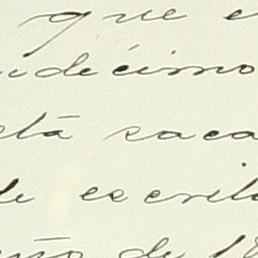 que e
ndécimo
stá saca
de escrit
año de 18